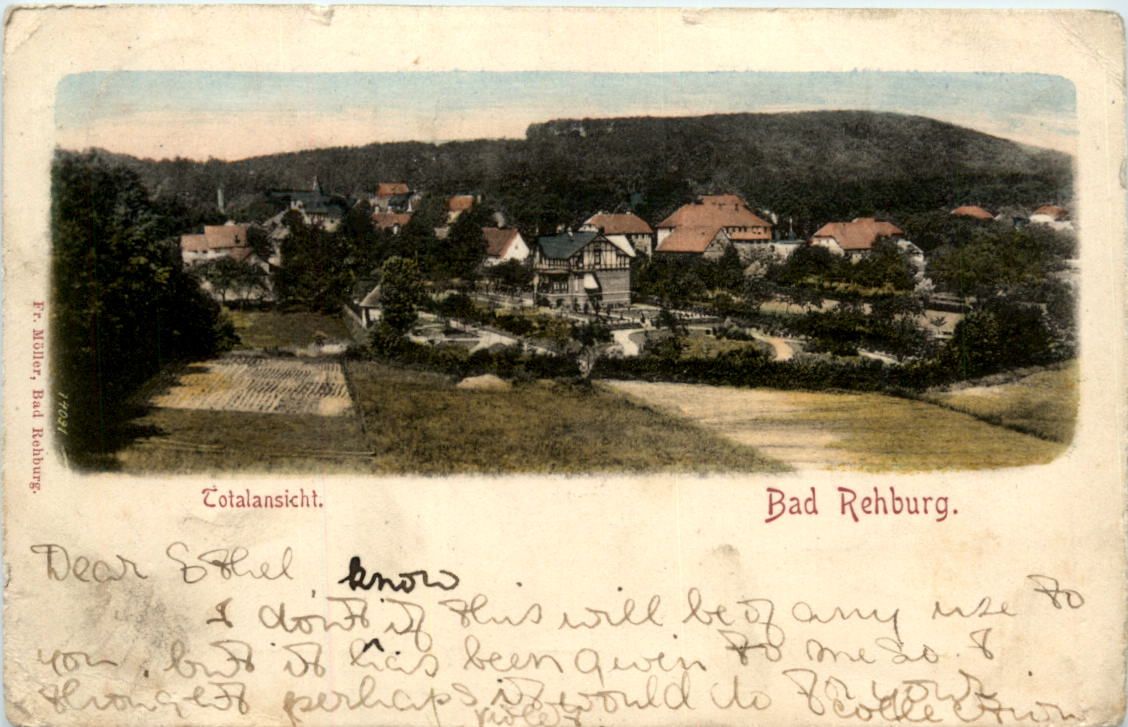 Fr. Möller, Bad Rehburg.
17031
Totalansicht.
Bad Rehburg.
Dear Ethel
know
I don't if this will be of any use to
you, but it has been given to me so I
thought perhaps it would do for your
collection